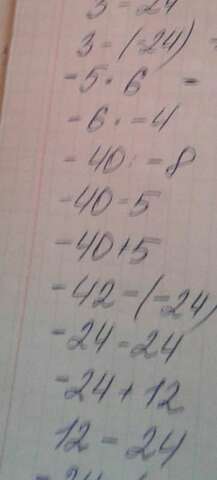 3 - 24
3 - (-24)
-5 · 6 -
-6 · -4
-40 : -8
-40 - 5
-40 + 5
-42 - (-24)
-24 - 24
-24 + 12
12 - 24